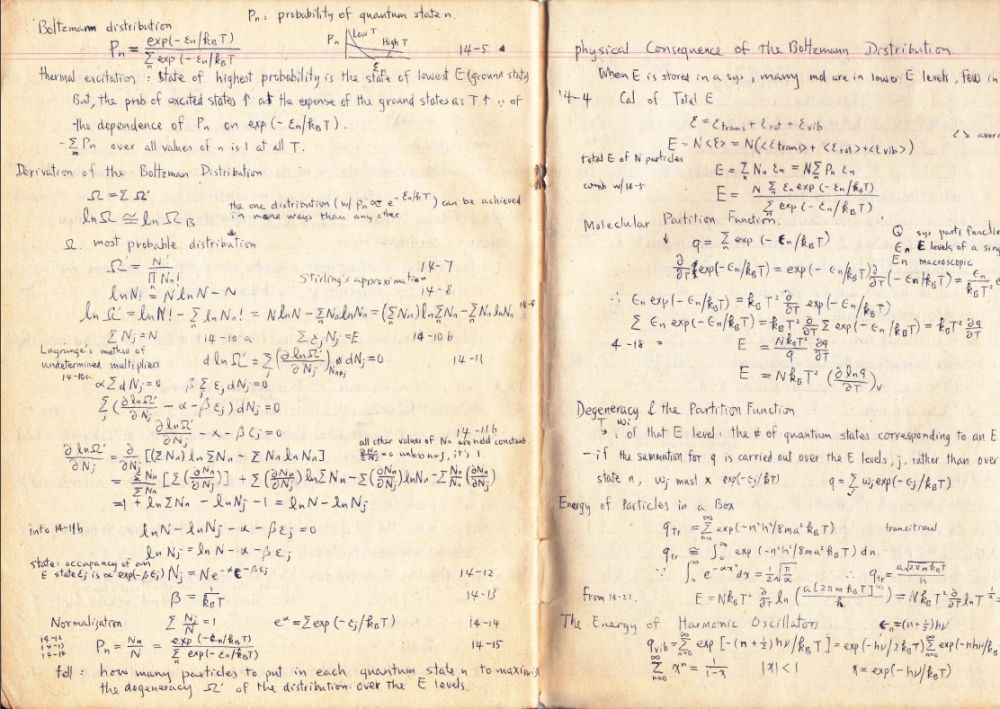 Pn : probability of quantum state n.
Boltzmann distribution
Pn = exp(-εn/kBT) / Σn exp(-εn/kBT)
Pn Low T High T ε
14-5
thermal excitation : state of highest probability is the state of lowest E (ground state)
But, the prob of excited states ↑ at the expense of the ground states as T ↑ ∵ of
the dependence of Pn on exp(-εn/kBT).
- Σn Pn over all values of n is 1 at all T.
Derivation of the Boltzman Distribution
Ω = Σ Ω'
ln Ω ≅ ln Ω B
the one distribution (w/ Pn ∝ e^-εn/kBT) can be achieved
in more ways than any other.
Ω. most probable distribution
Ω' = N! / Π Nn! 14-7
Stirling's approximation
lnN! = N lnN - N 14-8
ln Ω' = lnN! - Σn ln Nn! = N lnN - Σ Nn lnNn = (Σ Nn) ln Σ Nn - Σ Nn ln Nn 14-9
Σ Nj = N 14-10a Σ εj Nj = E 14-10b
Lagrange's method of
undetermined multipliers
14-10a
d ln Ω' = Σj (∂ lnΩ'/∂Nj)Nn≠j dNj = 0 14-11
αΣ dNj = 0 β Σj εj dNj = 0
Σj (∂ lnΩ'/∂Nj - α - βεj) dNj = 0
∂ lnΩ'/∂Nj - α - βεj = 0 14-11b
all other values of Nn are held constant
∂Nn/∂Nj = 0 unless n=j, it's 1.
∂ lnΩ'/∂Nj = ∂/∂Nj [(Σ Nn) ln Σ Nn - Σ Nn ln Nn]
= Σ Nn/Σ Nn [Σ (∂Nn/∂Nj)] + Σ (∂Nn/∂Nj) ln Σ Nn - Σ (∂Nn/∂Nj) lnNn - Σ Nn/Nn (∂Nn/∂Nj)
= 1 + ln Σ Nn - ln Nj - 1 = ln N - ln Nj
into 14-11b ln N - ln Nj - α - βεj = 0
ln Nj = ln N - α - βεj
state occupancy of an
E state εj is α exp(-βεj) Nj = N e^-α e^-βεj 14-12
β = 1/kBT 14-13
Normalisation Σ Nj/N = 1 e^α = Σ exp(-εj/kBT) 14-14
14-12
14-13
14-14
Pn = Nn/N = exp(-εn/kBT) / Σn exp(-εn/kBT) 14-15
tell : how many particles to put in each quantum state n to maximis
the degeneracy Ω' of the distribution over the E levels.
physical Consequence of the Boltzmann Distribution.
When E is stored in a sys, many mol are in lower E levels, few in
14-4 Cal of Total E
ε = εtrans + εrot + εvib
<> avera
E = N<ε> = N(<εtrans> + <εrot> + <εvib>)
total E of N particles
E = Σn Nn εn = N Σ Pn εn
comb w/14-5
E = N Σn εn exp(-εn/kBT) / Σn exp(-εn/kBT)
Molecular Partition Function.
q = Σn exp(-εn/kBT)
Q sys parti functio
εn E levels of a sing
En macroscopic
∂/∂T exp(-εn/kBT) = exp(-εn/kBT) ∂/∂T (-εn/kBT) = εn/kBT² e
∴ εn exp(-εn/kBT) = kBT² ∂/∂T exp(-εn/kBT)
Σ εn exp(-εn/kBT) = kBT² ∂/∂T Σ exp(-εn/kBT) = kBT² ∂q/∂T
4-18 = E = NkBT²/q ∂q/∂T
E = NkBT² (∂lnq/∂T)v
Degeneracy & the Partition Function
↑ wj
: of that E level : the # of quantum states corresponding to an E
- if the summation for q is carried out over the E levels, j, rather than over
state n, wj must x exp(-εj/kBT) q = Σj wj exp(-εj/kBT)
Energy of Particles in a Box
qtr = Σn=1^∞ exp(-n²h²/8ma²kBT) transitional
qtr ≅ ∫0^∞ exp(-n²h²/8ma²kBT) dn
∵ ∫0^∞ e^-αx² dx = 1/2 √(π/α) ∴ qtr = a√(2πmkBT)/h
from 14-22. E = NkBT² ∂/∂T ln (a[2πmkBT]^½/h) = NkBT² ∂/∂T ln T^½ =
The Energy of Harmonic Oscillators εn = (n+½)hν
qvib = Σn=0^∞ exp[-(n+½)hν/kBT] = exp(-hν/2kBT) Σn=0^∞ exp(-nhν/kB
Σn=0^∞ x^n = 1/1-x |x| < 1 x = exp(-hν/kBT)